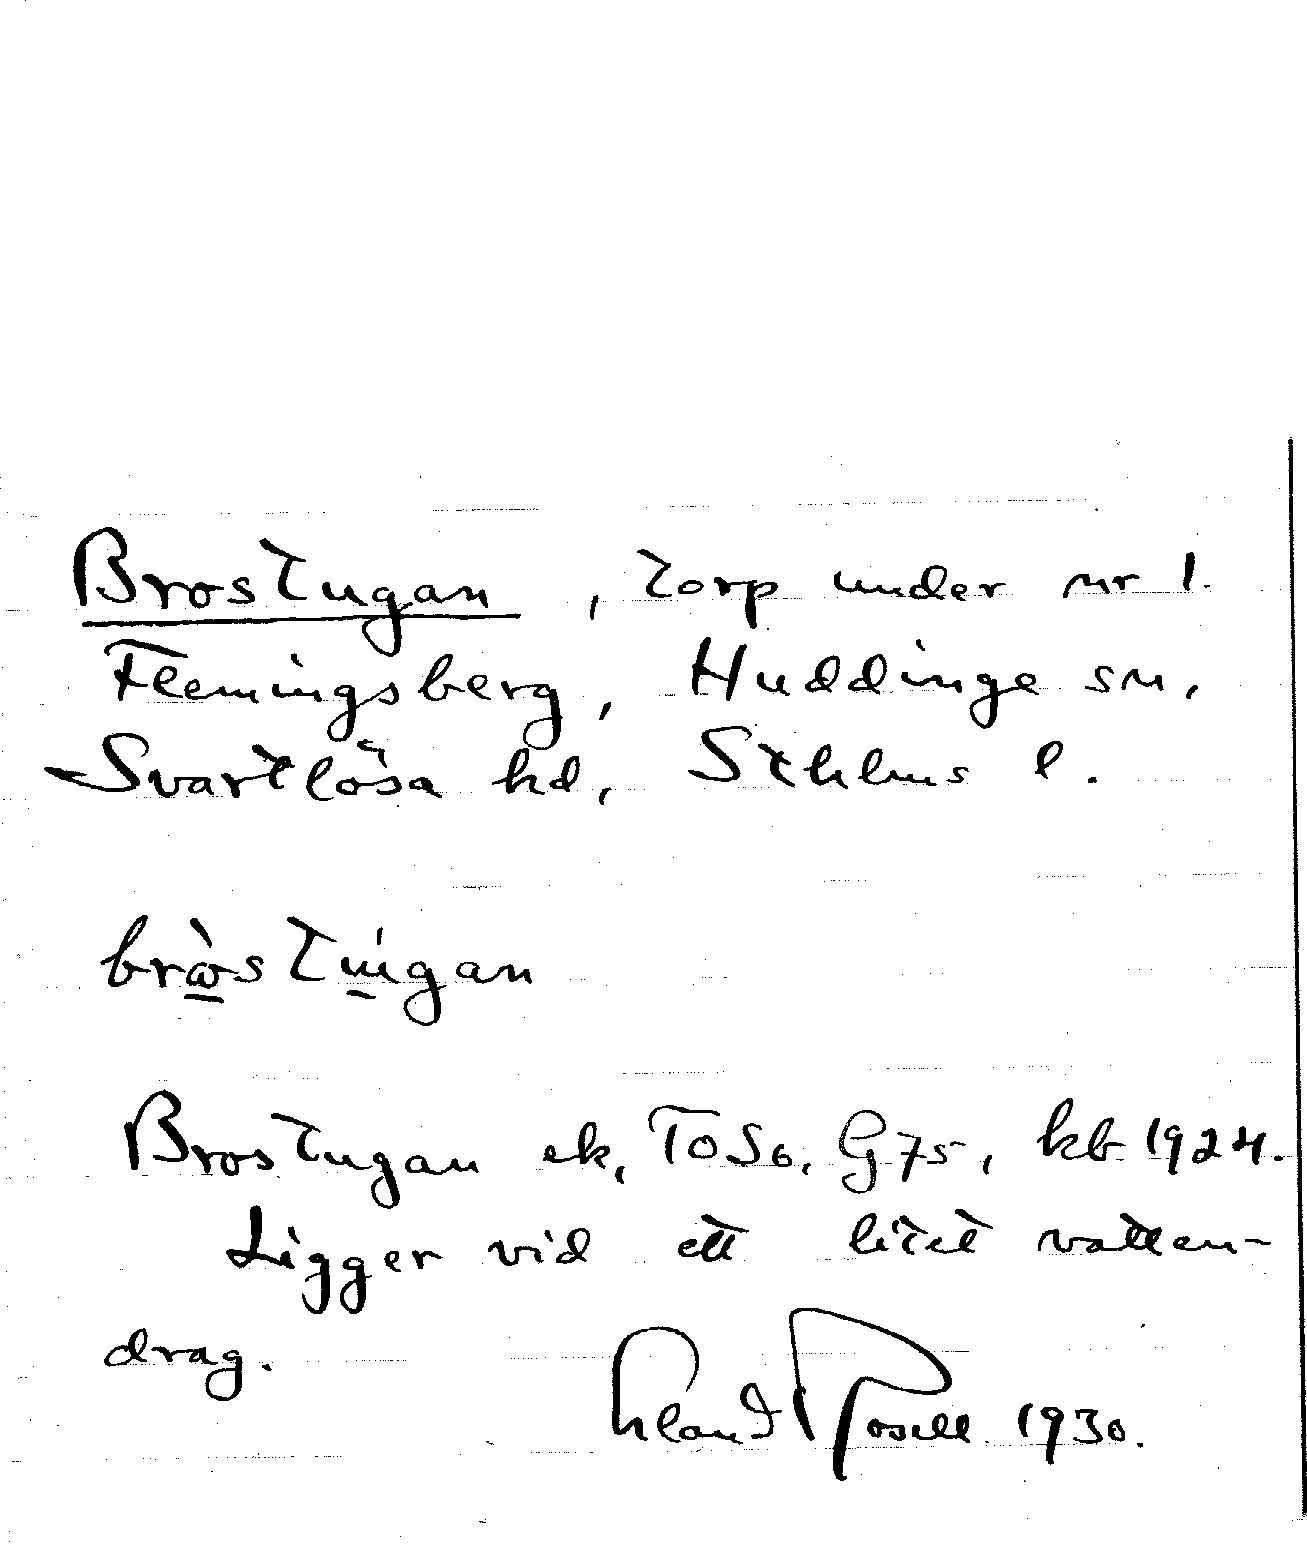 Brostugan, torp under nr 1.
Flemingsberg, Huddinge sn,
Svartlösa hd, Sthlms l.
Brostugan ek, ToSo, G75, kb 1924.
Ligger vid ett litet vatten-
drag.
1930.